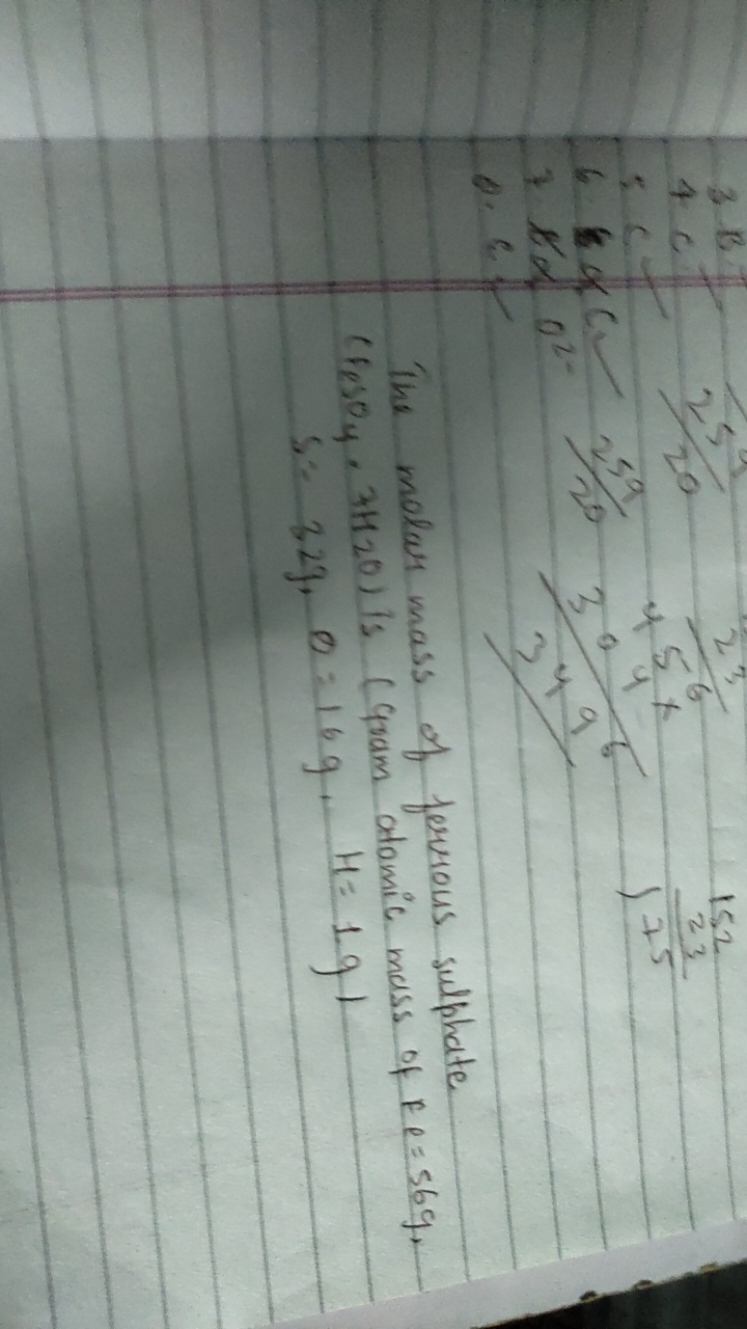 3. B
4. C
5. C
6. C
7. O²⁻
8. C
259
20
259
20
23
456
4 x
304
3496
152
23
175
The molar mass of ferrous sulphate
(FeSO4 . 7H2O) is (Gram atomic mass of Fe = 56g,
S = 32g, O = 16g, H = 1g)